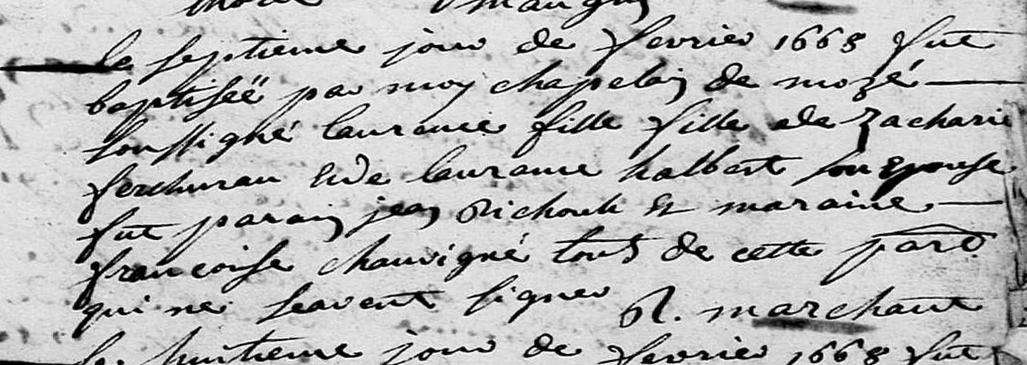 le septieme jour de fevrier 1668 fut
baptiséë par moy chapelain de mozé
soussigné laurance fille fille de Zacharie
et de laurance halbert son epouse
fut parain jean Richou et maraine
francoise chauvigné tous de cette par
qui ne scavent signer R. marchant
le huitieme jour de fevrier 1668 fut